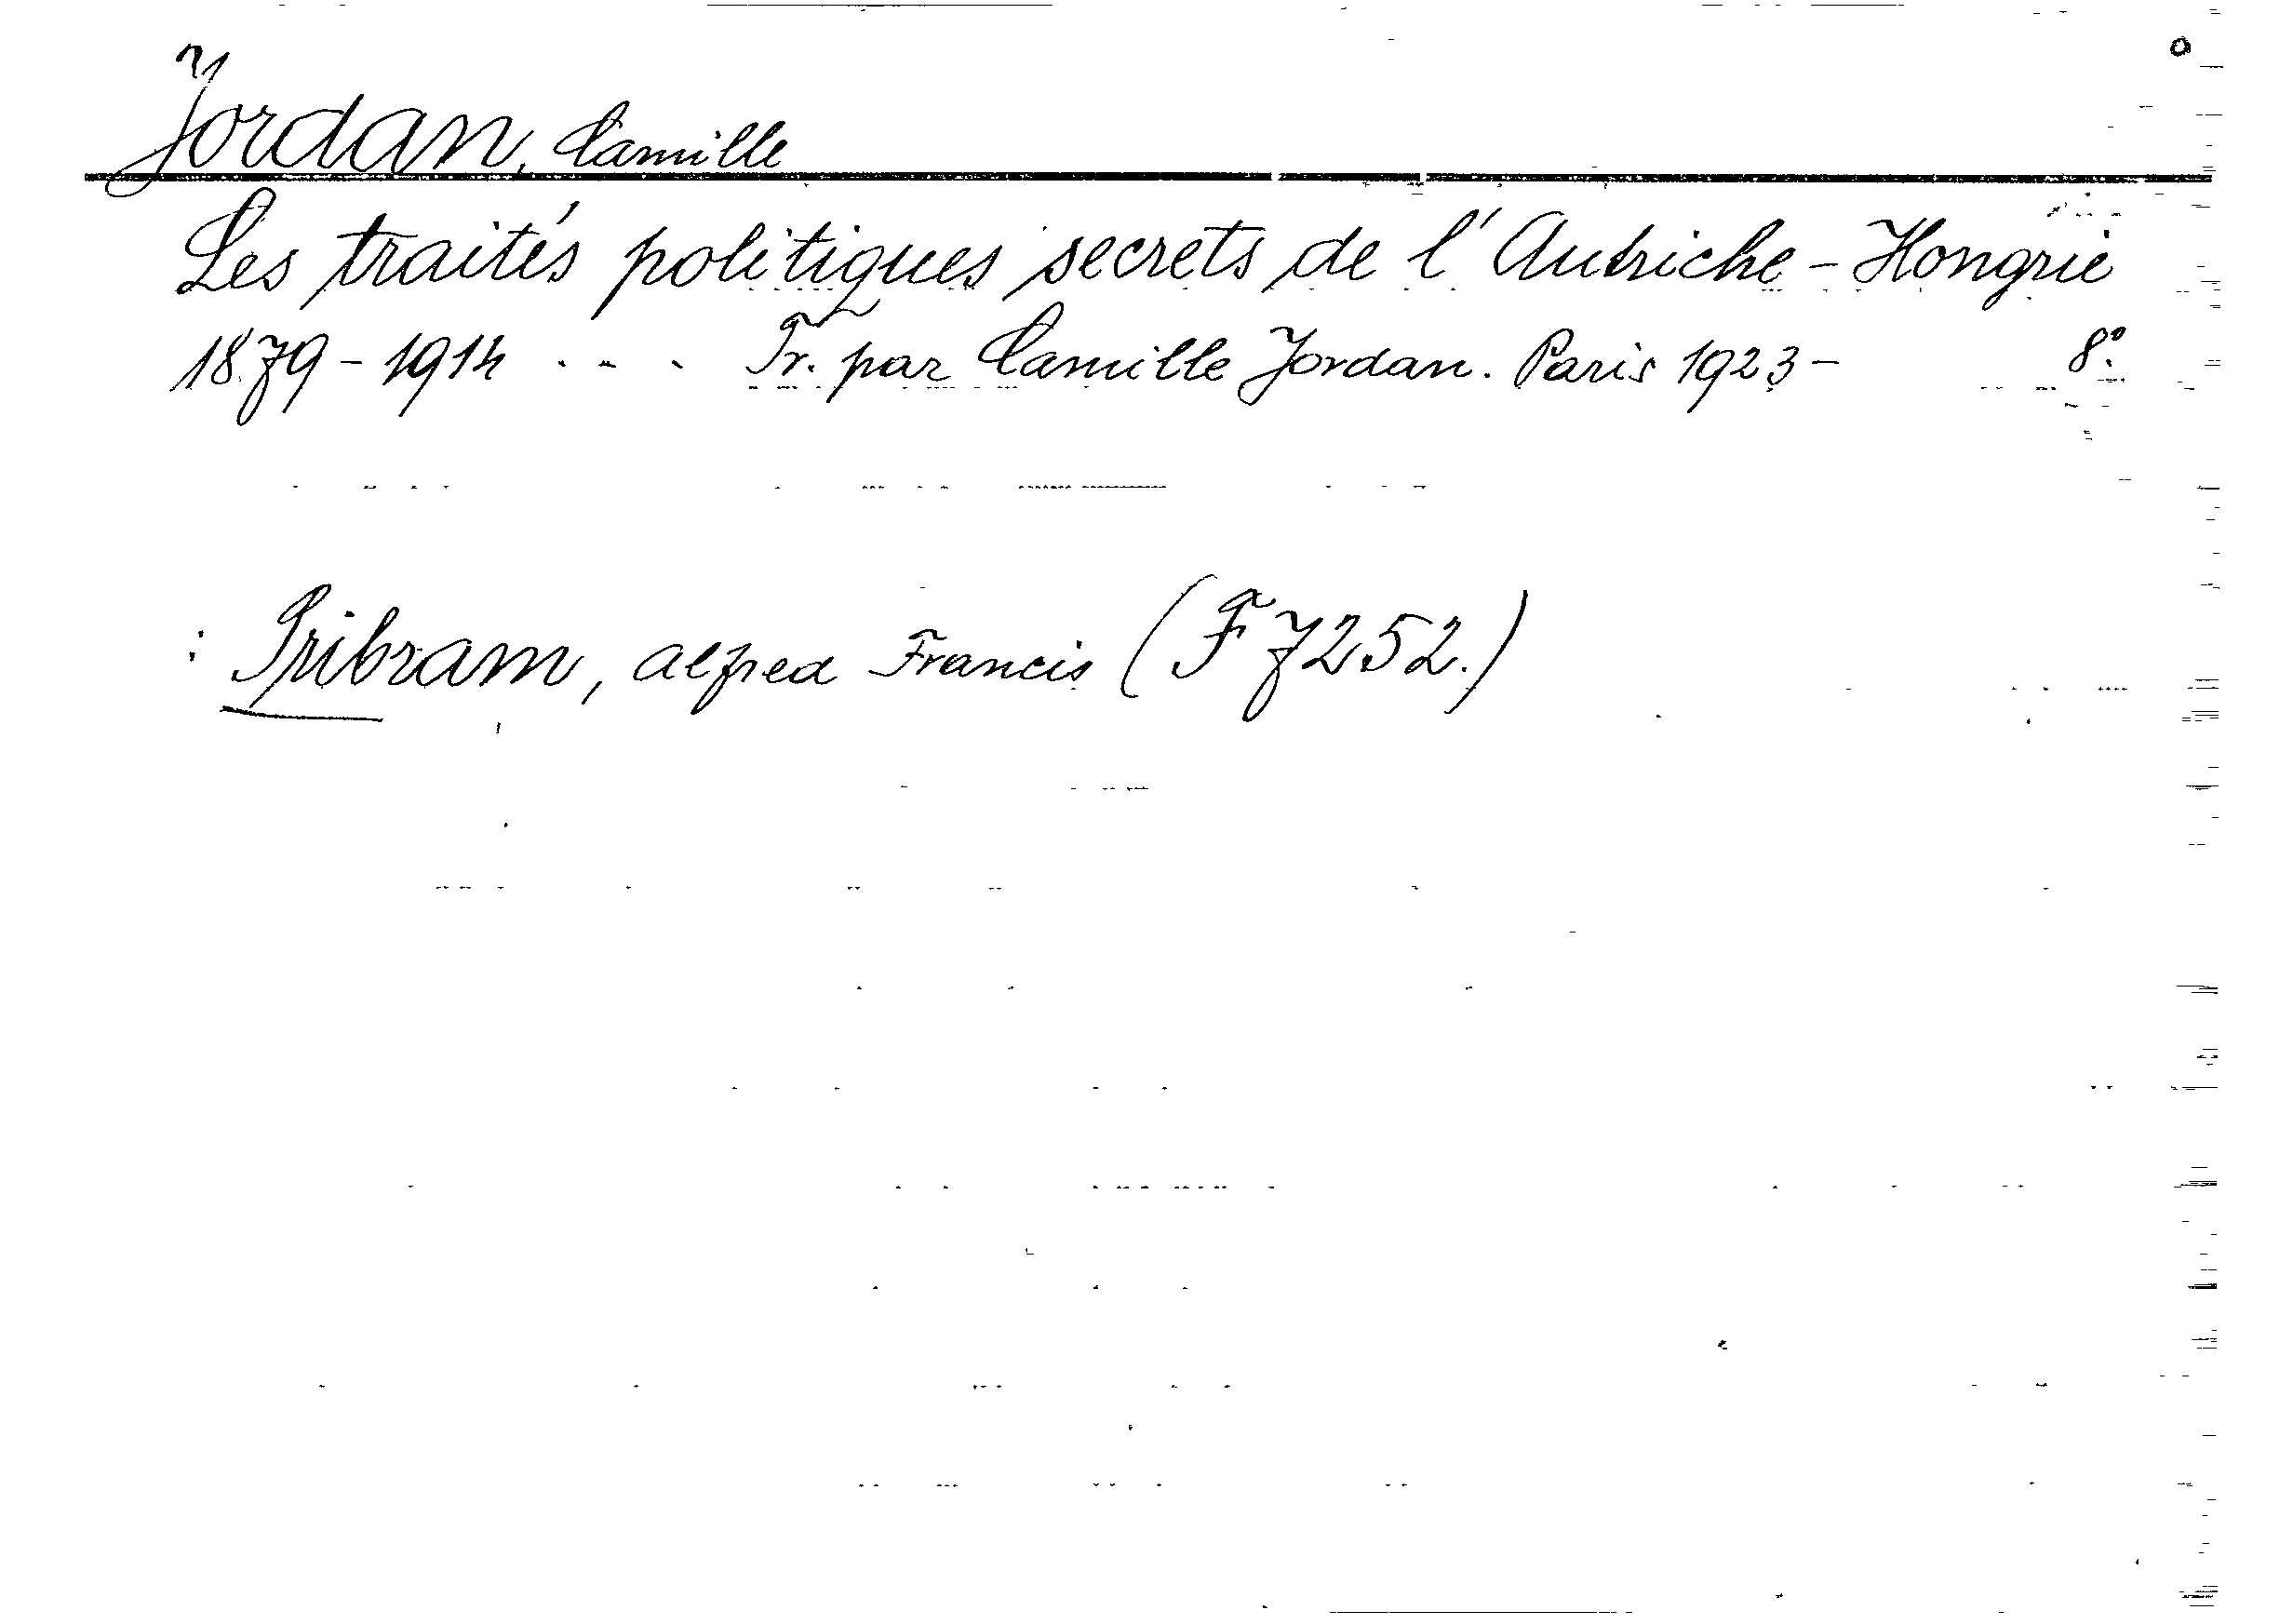 Jordan, Camille
Les traités politiques secrets de l'Autriche-Hongrie
1879-1914 . . . Tr. par Camille Jordan. Paris 1923- 8:o
: Pribram, Alfred Francis (F 7252.)